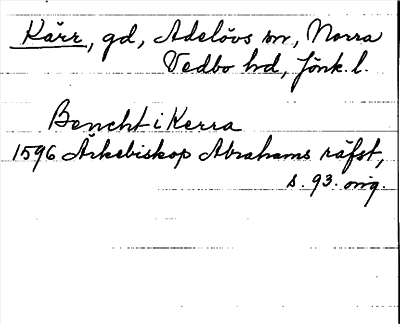 Kärr, gd, Adelövs sn, Norra
Vedbo hd, Jönk. l.
Bencht i Kerra
1596 Ärkebiskop Abrahams räfst,
s. 93. orig.